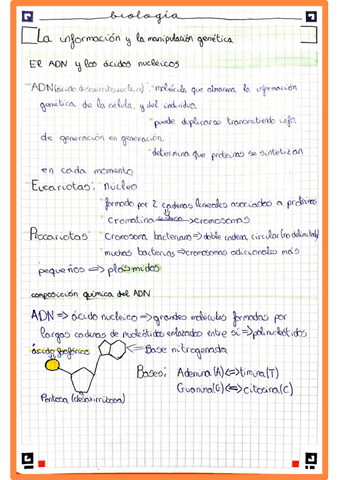 biología
La información y la manipulación genética
El ADN y los ácidos nucleicos
ADN (ácido desoxirribonucleico) · molécula que almacena la información
genética de la célula, y del individuo.
· puede duplicarse transmitiendo info.
de generación en generación.
· determina que proteínas se sintetizan
en cada momento
Eucariotas: Núcleo
formado por 2 cadenas lineales asociadas a proteínas
Cromatina ⟹ cromosomas
Procariotas Cromosoma bacteriano ⟹ doble cadena circular (no delimitada)
muchas bacterias ⟹ cromosomas adicionales más
pequeños ⟹ plásmidos
composición química del ADN
ADN ⟹ ácido nucleico ⟹ grandes moléculas formadas por
largas cadenas de nucleótidos enlazados entre sí ⟹ polinucleótidos
ácido fosfórico
Base nitrogenada
Bases: Adenina (A) ⟺ timina (T)
Guanina (G) ⟺ citosina (C)
Pentosa (desoxirribosa)